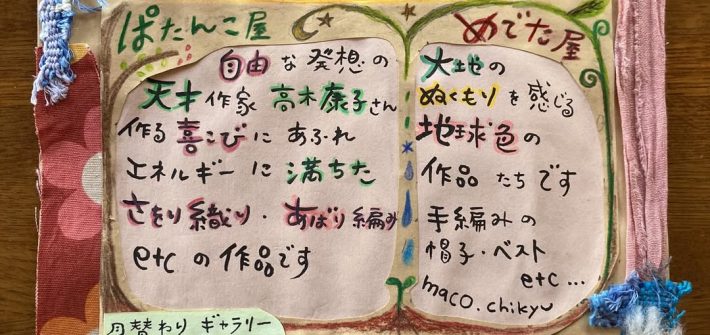 ぱたんこ屋
自由な発想の
天才作家 高木康子さん
作る喜こびにあふれ
エネルギーに満ちた
さをり織り・あばり編み
etcの作品です
月替わりギャラリー
めでた屋
大地の
ぬくもりを感じる
地球色の
作品たちです
手編みの
帽子・ベスト
etc...
maco.chikyu